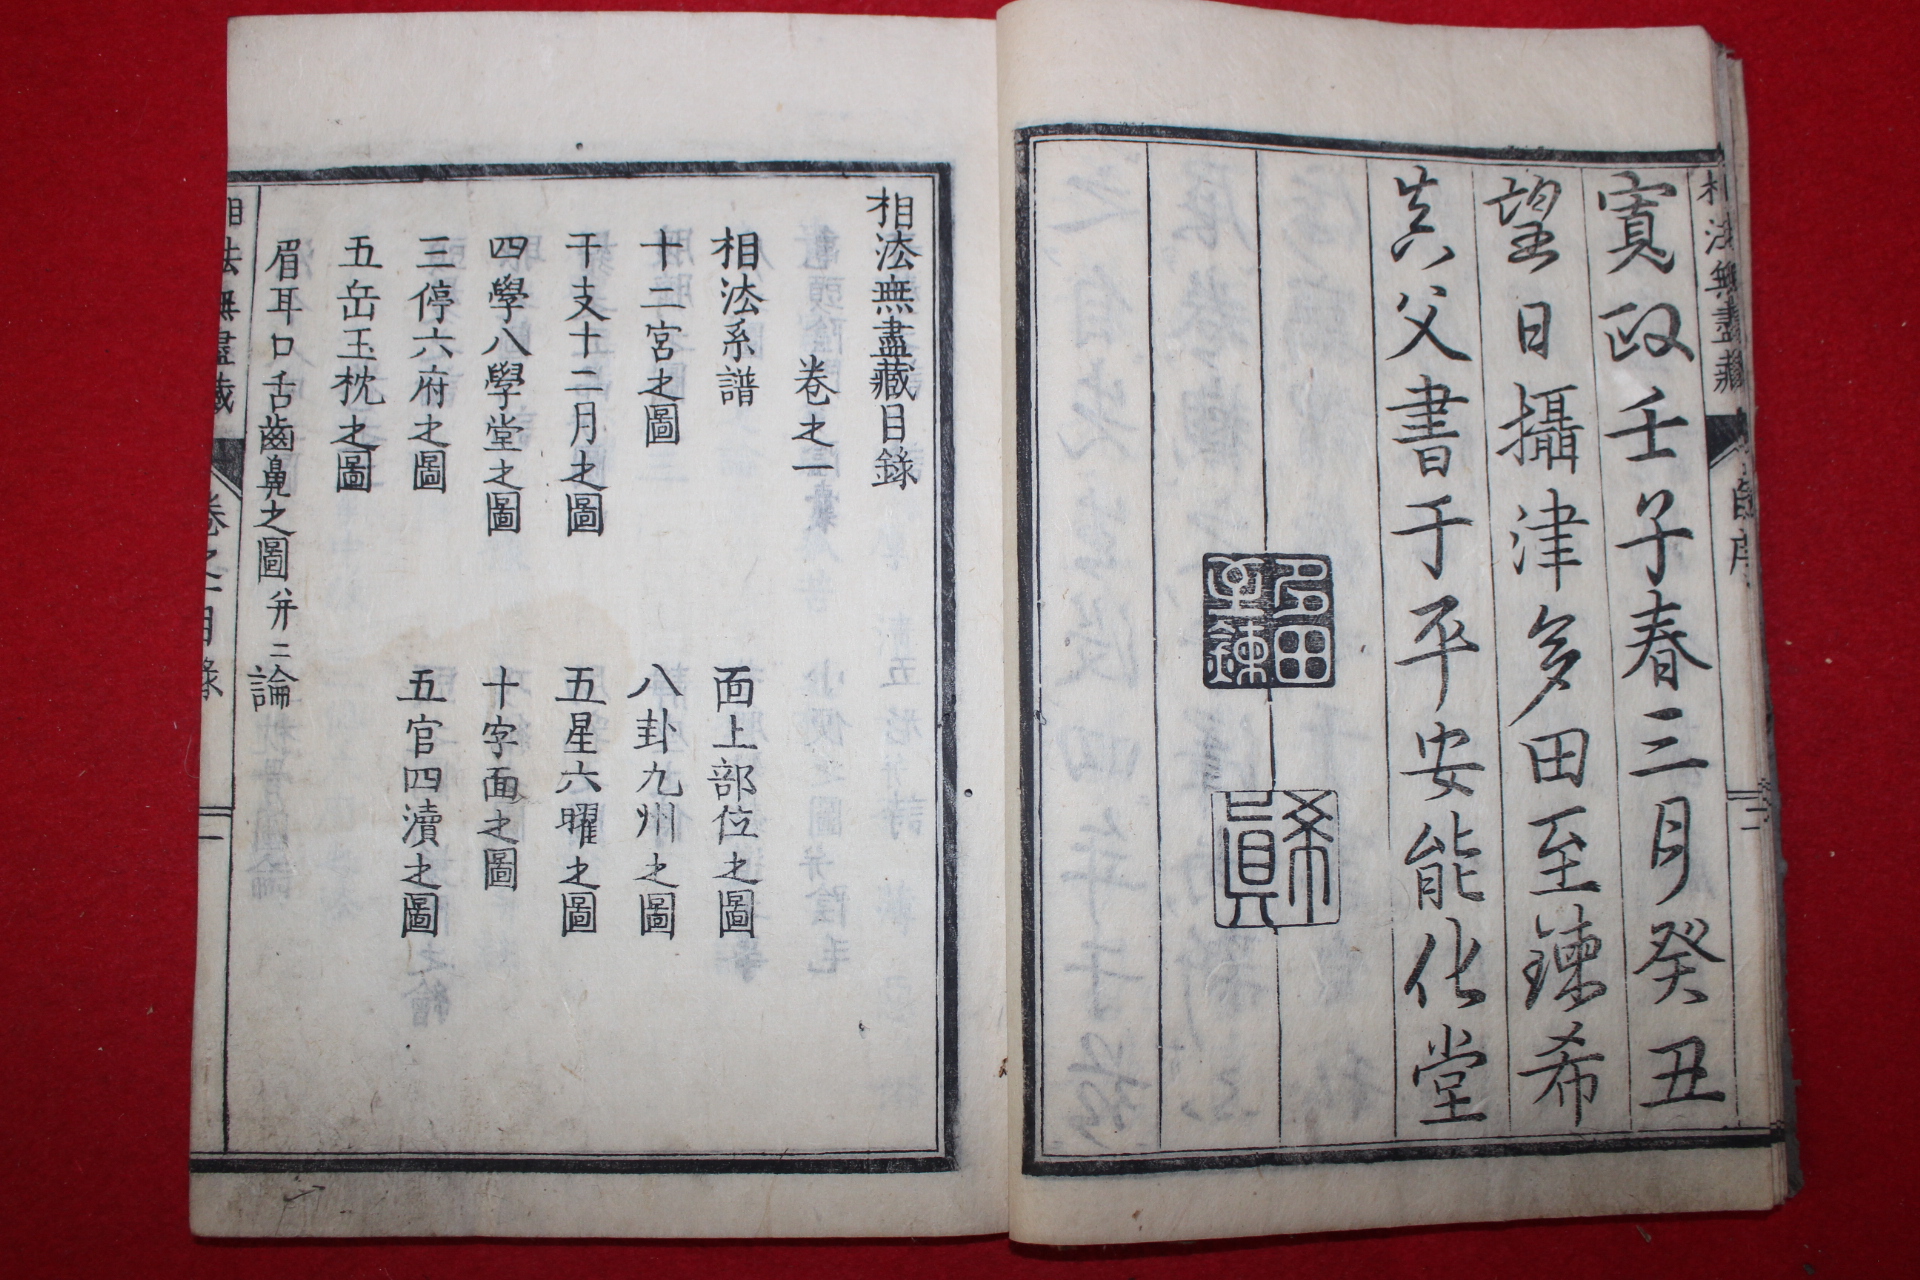 寛政壬子春三月癸丑
望日攝津多田至錬希
眞父書于平安能化堂
多田
至錬
希
眞
相法無盡藏
相法無盡藏目錄
卷之一
相法系譜
面上部位之圖
十二宮之圖
八卦九州之圖
干支十二月之圖
五星六曜之圖
四學八學堂之圖
十字面之圖
三停六府之圖
五官四瀆之圖
五岳玉枕之圖
眉耳口舌齒鼻之圖并二論
相法無盡藏
卷之一目錄
一